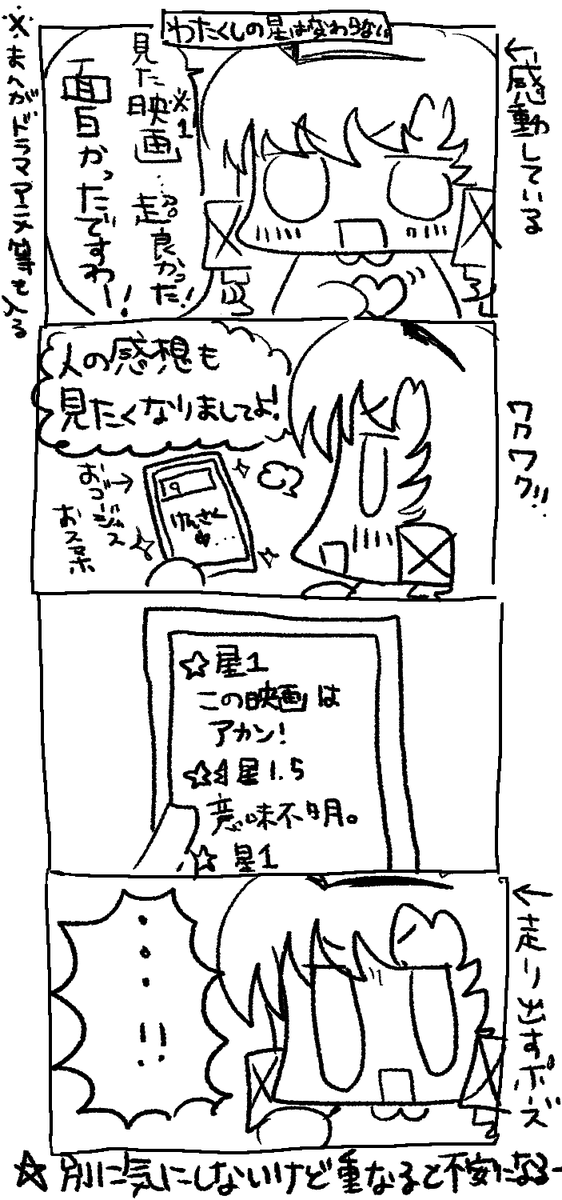 わたくしの星は変わらない
←感動している
見た映画※1…超良かった!
面白かったですわー!
※まんがドラマアニメ等も入る
ワクワク!!
人の感想も
見たくなりましてよ!
おゴージャス→
おスマホ
けんさく
♥…
☆星1
この映画は
アカン!
☆星1.5
意味不明。
☆星1
←走り出すポーズ
…!!
☆別に気にしないけど重なると不安になるー